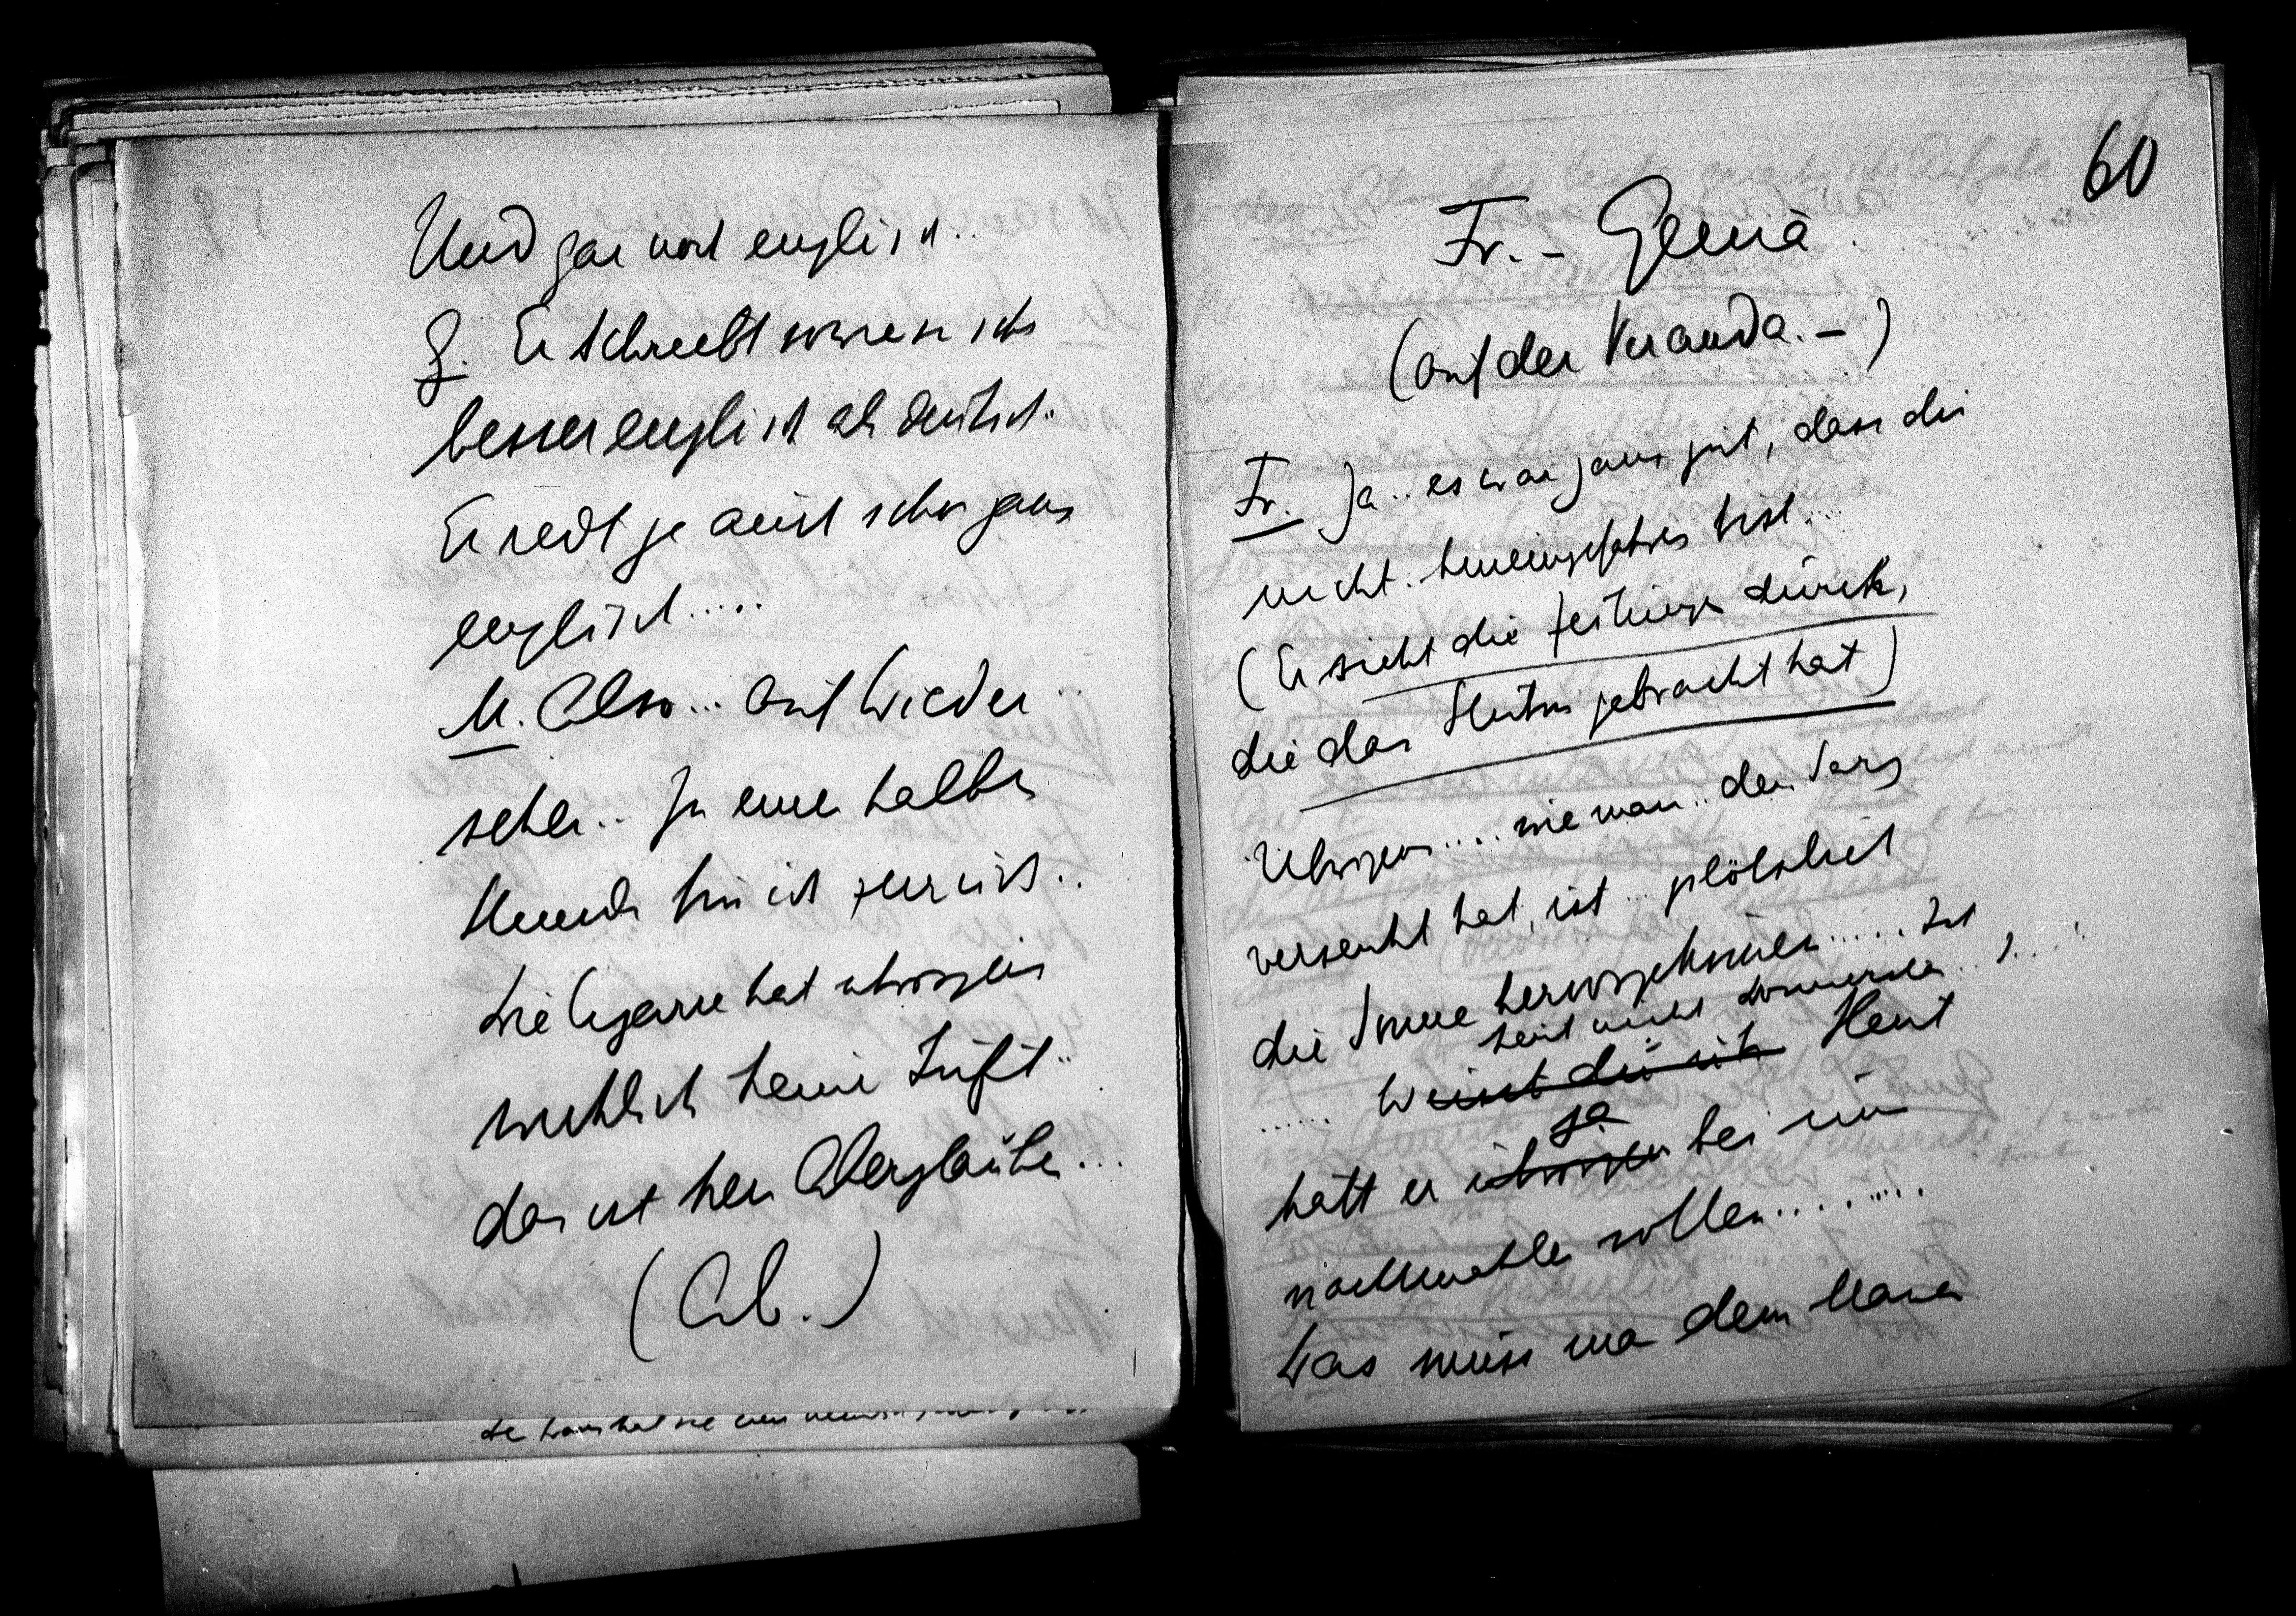 Und gar noch englisch..
G. Er schreibt sowieso
besser englisch als deutsch..
Er redt ja auch schon ganz
englisch.....
M. Also... auf Wieder
sehen.. In einer halben
Stunde bin ich zurück..
Die Cigarre hat übrigens
wirklich keine Luft..
das ist kein Aberglauben...
(Ab.)
60
Fr. – Genia.
(auf der Veranda. –)
Fr. Ja.. es war ganz gut, dass du
nicht.. hineingefahren bist....
(Er sieht die Zeitungen durch,
die das Stubn gebracht hat)
Übrigens..... wie man.. den Sarg
versenkt hat, ist... plötzlich
die Sonne hervorgekommen......
......
weisst du ich Heut
ja
hätt er übrigens bei uns
nachtmahlen sollen.........
Was muss